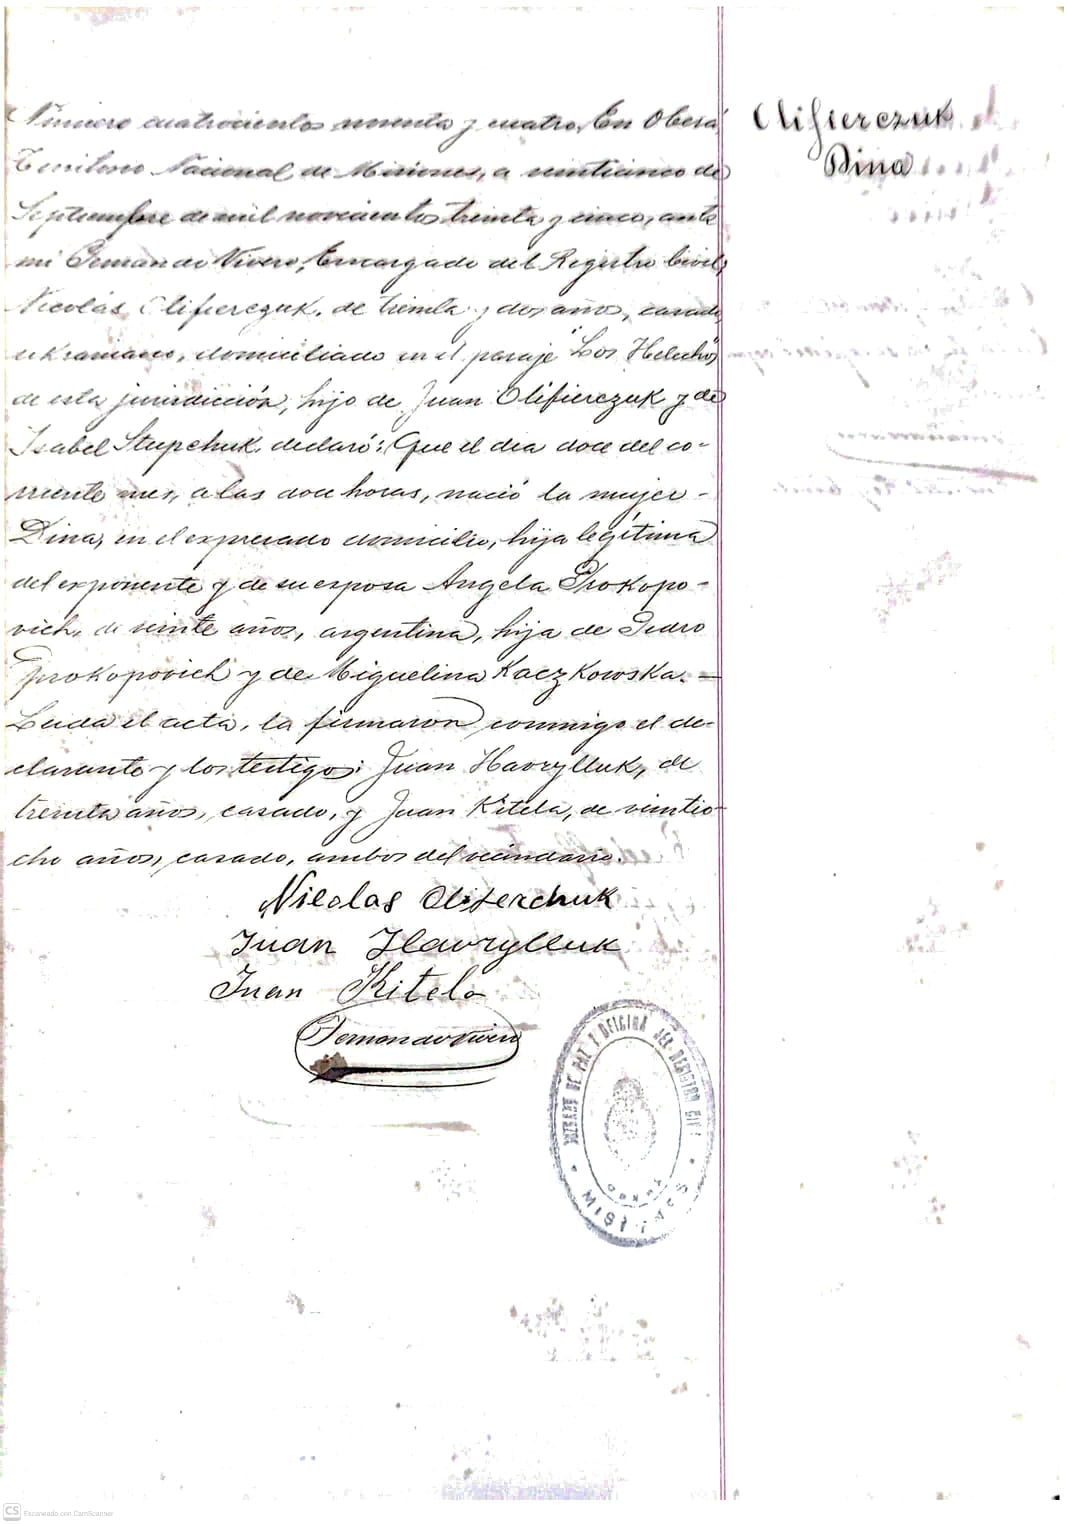 Número cuatrocientos noventa y cuatro. En Oberá,
Territorio Nacional de Misiones, a veinticinco de
Septiembre de mil novecientos treinta y cinco, ante
mi Fernando Vivero, Encargado del Registro Civil,
Nicolás Olifierczuk, de treinta y dos años, casado,
ukraniano, domiciliado en el paraje "Los Helechos"
de esta jurisdicción, hijo de Juan Olifierczuk y de
Isabel Stupchuk, declaró: Que el día doce del co-
rriente mes, a las doce horas, nació la mujer -
Dina, en el expresado domicilio, hija legítima
del exponente y de su esposa Angela Prokopo-
vich, de veinte años, argentina, hija de Pedro
Prokopovich y de Miguelina Kaczkowska. —
Leída el acta, la firmaron conmigo el de-
clarante y los testigos: Juan Havrylluk, de
treinta años, casado, y Juan Kitela, de vintio-
cho años, casado, ambos del vecindario.
Nicolas Oliferchuk
Juan Havrylluk
Juan Kitela
Fernando Vivero
Olifierczuk
Dina
JUZGADO DE PAZ Y OFICINA DEL REGISTRO CIVIL
OBERÁ
MISIONES
CS Escaneado con CamScanner